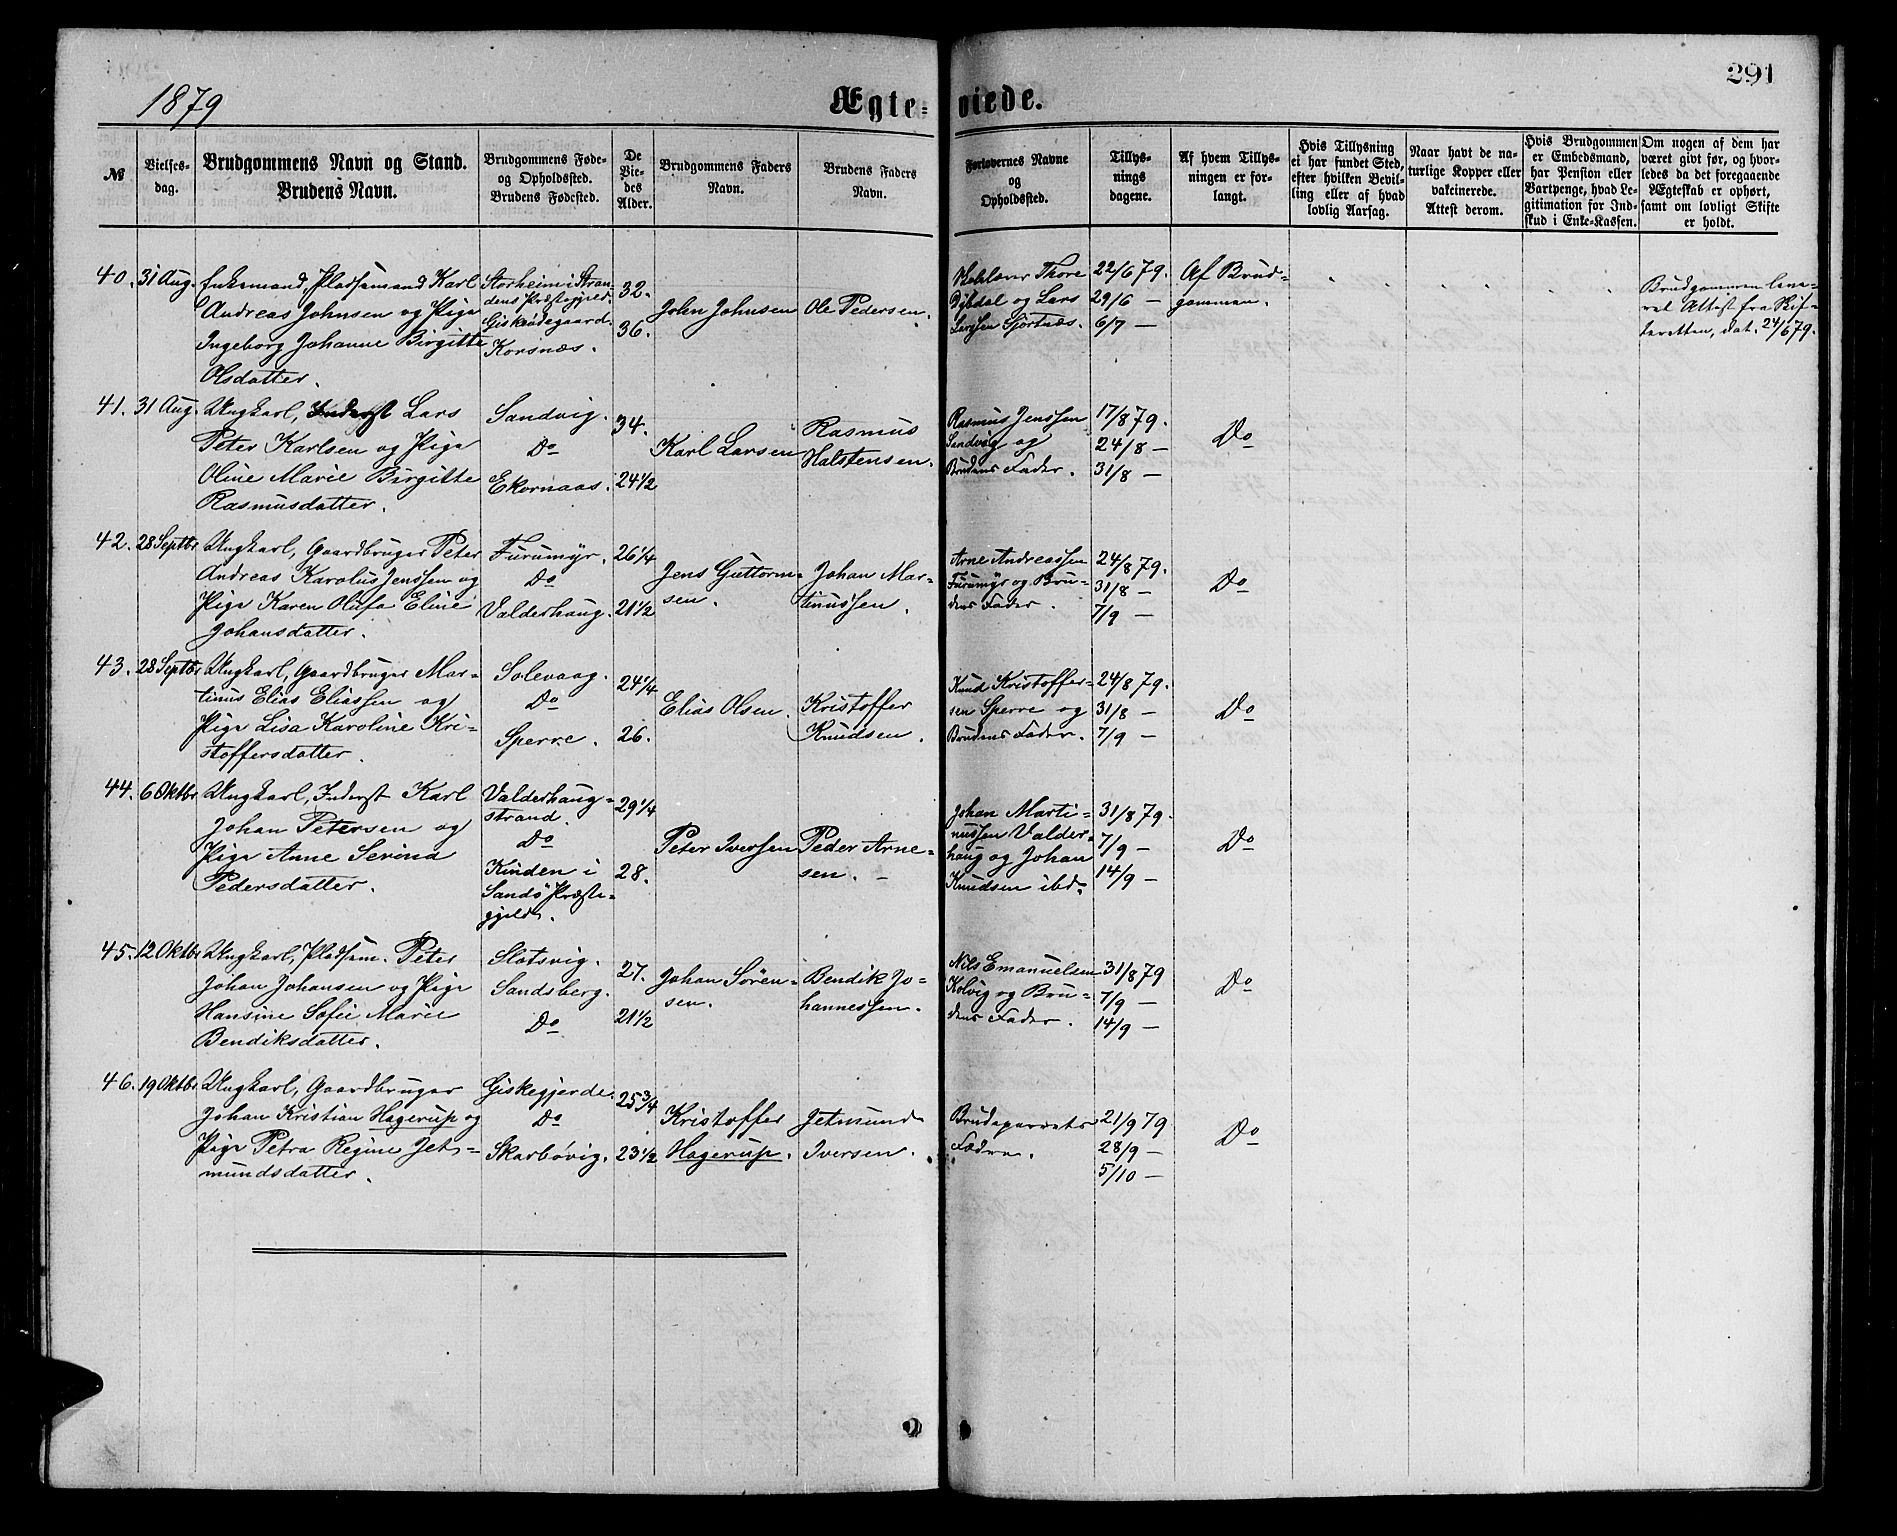 1879
Ægteviede.
291
№
Vielses-
dag.
Brudgommens Navn og Stand.
Brudens Navn.
Brudgommens Føde-
og Opholdssted.
Brudens Fødested.
De
Vie-
des
Alder.
Brudgommens Faders
Navn.
Brudens Faders
Navn.
Forlovernes Navne
og
Opholdssted.
Tillys-
nings
dagene.
Af hvem Tillys-
ningen er for-
langt.
Hvis Tillysning
ei har fundet Sted,
efter hvilken Bevil-
ling eller af hvad
lovlig Aarsag.
Naar havt de na-
turlige Kopper eller
vakcinerede.
Attest derom.
Hvis Brudgommen
er Embedsmand,
har Pension eller
Vartpenge, hvad Le-
gitimation for Ind-
skud i Enke-Kassen.
Om nogen af dem har
været givt før, og hvor-
ledes da det foregaaende
Ægteskab er ophørt,
samt om lovligt Skifte
er holdt.
40. 31 Aug.
Enkemand, Pladsemand Karl
Andreas Johnsen og Pige
Ingeborg Johanne Birgitte
Olsdatter.
Storheim i Stran-
dens Præstegjeld.
Giskeødegaard.
Korsnæs.
32.
36.
John Johnsen
Ole Pedersen.
Thore
Dybdal og Lars
Larssen Gjørtnæs.
22/6 79.
29/6 —
6/7 —
Af Brud-
gommen.
Brudgommen leve-
ret Attest fra Skif-
teretten, dat. 24/6 79.
41. 31 Aug.
Ungkarl, Inderst Lars
Peter Karlsen og Pige
Oline Marie Birgitte
Rasmusdatter.
Sandvig.
Do
Ekornaas.
34.
24 1/2
Karl Larsen
Rasmus
Halstensen.
Rasmus Jenssen
Sandvig og
Brudens Fader.
17/8 79.
24/8 —
31/8 —
Do
42. 28 Septbr
Ungkarl, Gaardbruger Peter
Andreas Karolus Jenssen og
Pige Karen Olufa Eline
Johansdatter.
Furumyr.
Do
Valderhaug.
26 1/4
21 1/2
Jens Guttorm-
sen.
Johan Mar-
tinussen.
Arne Andreassen
Furumyr og Bru-
dens Fader.
24/8 79.
31/8 —
7/9 —
Do
43. 28 Septbr
Ungkarl, Gaardbruger Mar-
tinus Elias Eliassen og
Pige Lisa Karoline Kri-
stoffersdatter.
Solevaag.
Do
Sperre.
24 1/4
26.
Elias Olsen.
Kristoffer
Knudsen.
Knud Kristoffer-
sen Sperre og
Brudens Fader.
24/8 79.
31/8 —
7/9 —
Do
44. 6 Oktbr
Ungkarl, Inderst Karl
Johan Petersen og
Pige Anne Serina
Pedersdatter.
Valderhaug-
strand.
Do
Kinden i
Sandø Præste-
gjeld.
29 1/4
28.
Peter Iversen
Peder Arne-
sen. —
Johan Marti-
nussen Valder-
haug og Johan
Knudsen ibd.
31/8 79.
7/9 —
14/9 —
Do
45. 12 Oktbr
Ungkarl, Pladsem. Peter
Johan Johansen og Pige
Hansine Sofie Marie
Bendiksdatter.
Slotsvig.
Sandsberg.
Do
27.
21 1/2
Johan Søren-
sen.
Bendik Jo-
hannessen.
Nils Emanuelsen
Kolvig og Bru-
dens Fader.
31/8 79
7/9 —
14/9 —
Do
46. 19 Oktbr
Ungkarl, Gaardbruger
Johan Kristian Hagerup og
Pige Petra Regine Jet-
mundsdatter.
Giskegjerde.
Do
Skarbøvig.
25 3/4
23 1/2
Kristoffer
Hagerup.
Jetmund
Iversen.
Brudeparrets
Fædre.
21/9 79
28/9 —
5/10 —
Do